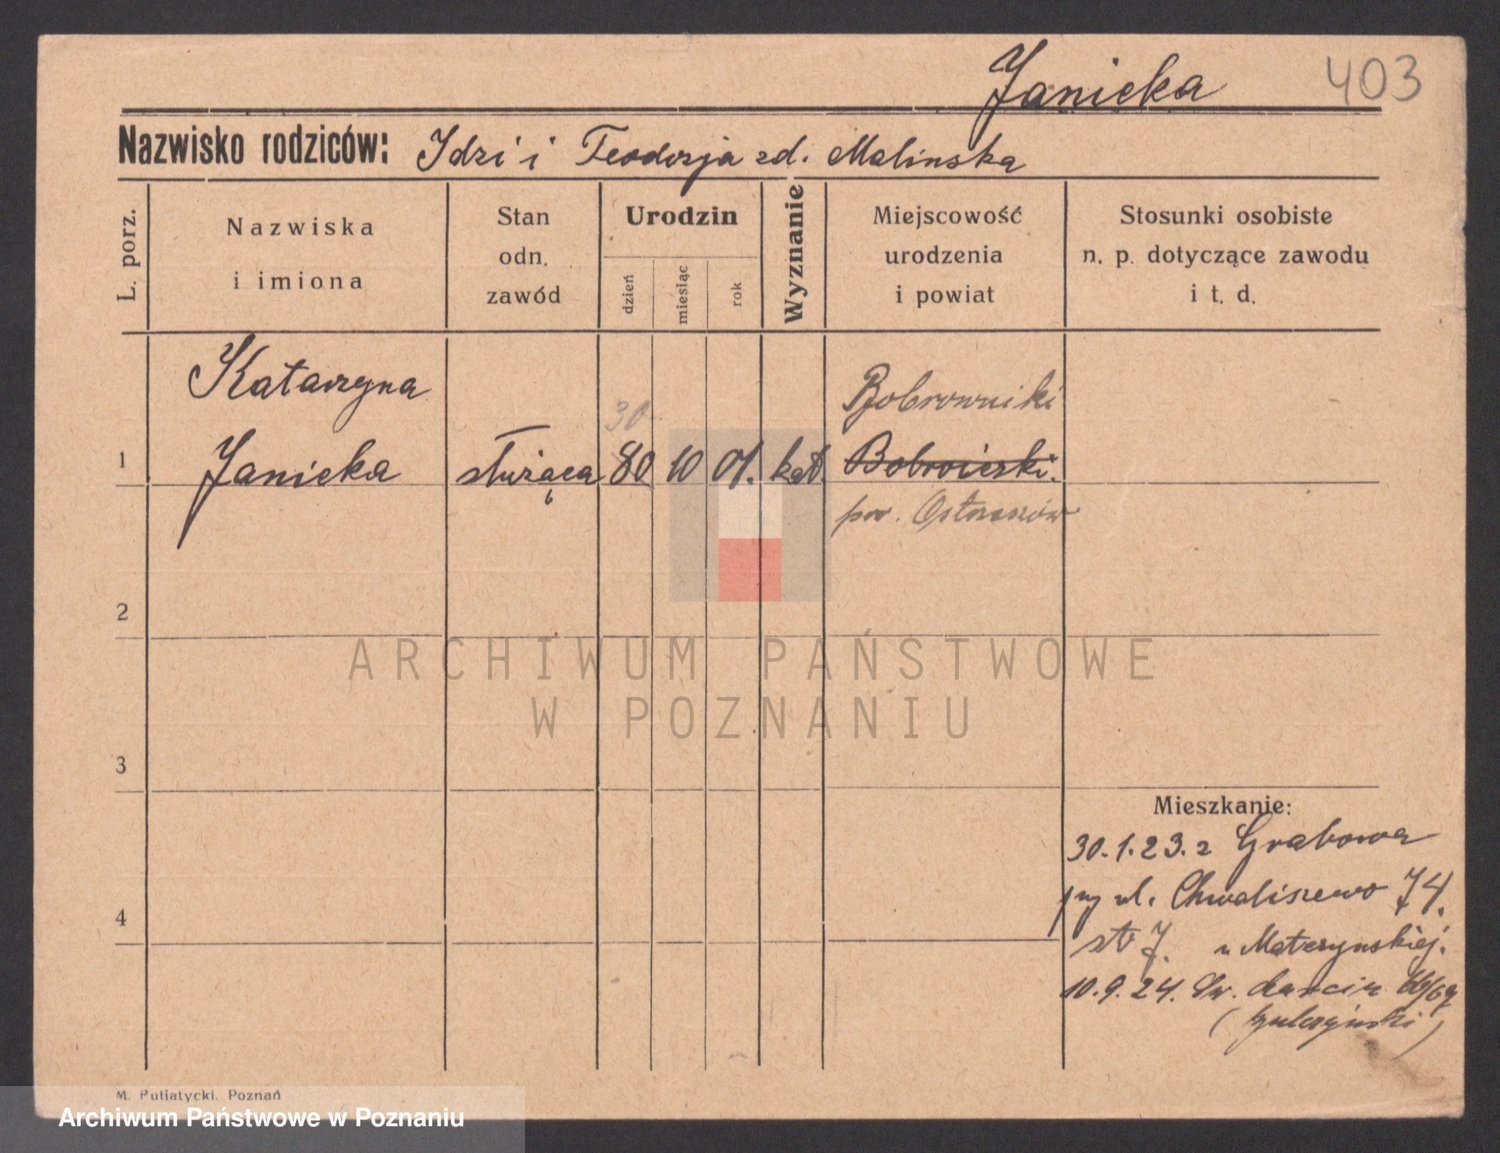 Janicka 403
Nazwisko rodziców: Idzi i Teodozja zd. Malinska
L. porz.
Nazwiska
i imiona
Stan
odn.
zawód
Urodzin
dzień
miesiąc
rok
Wyznanie
Miejscowość
urodzenia
i powiat
Stosunki osobiste
n. p. dotyczące zawodu
i t. d.
Katarzyna
Bobrowniki
30
1 Janicka służąca 80 10 01. kat.
pow. Ostrzeszów
2
ARCHIWUM PAŃSTWOWE
W POZNANIU
3
Mieszkanie:
30.1.23. z Grabowa
ul. Chwaliszewo 74.
4
u Matczynskiej.
10.9.24. Św. Marcin 66/67
M. Putiatycki. Poznań
Archiwum Państwowe w Poznaniu